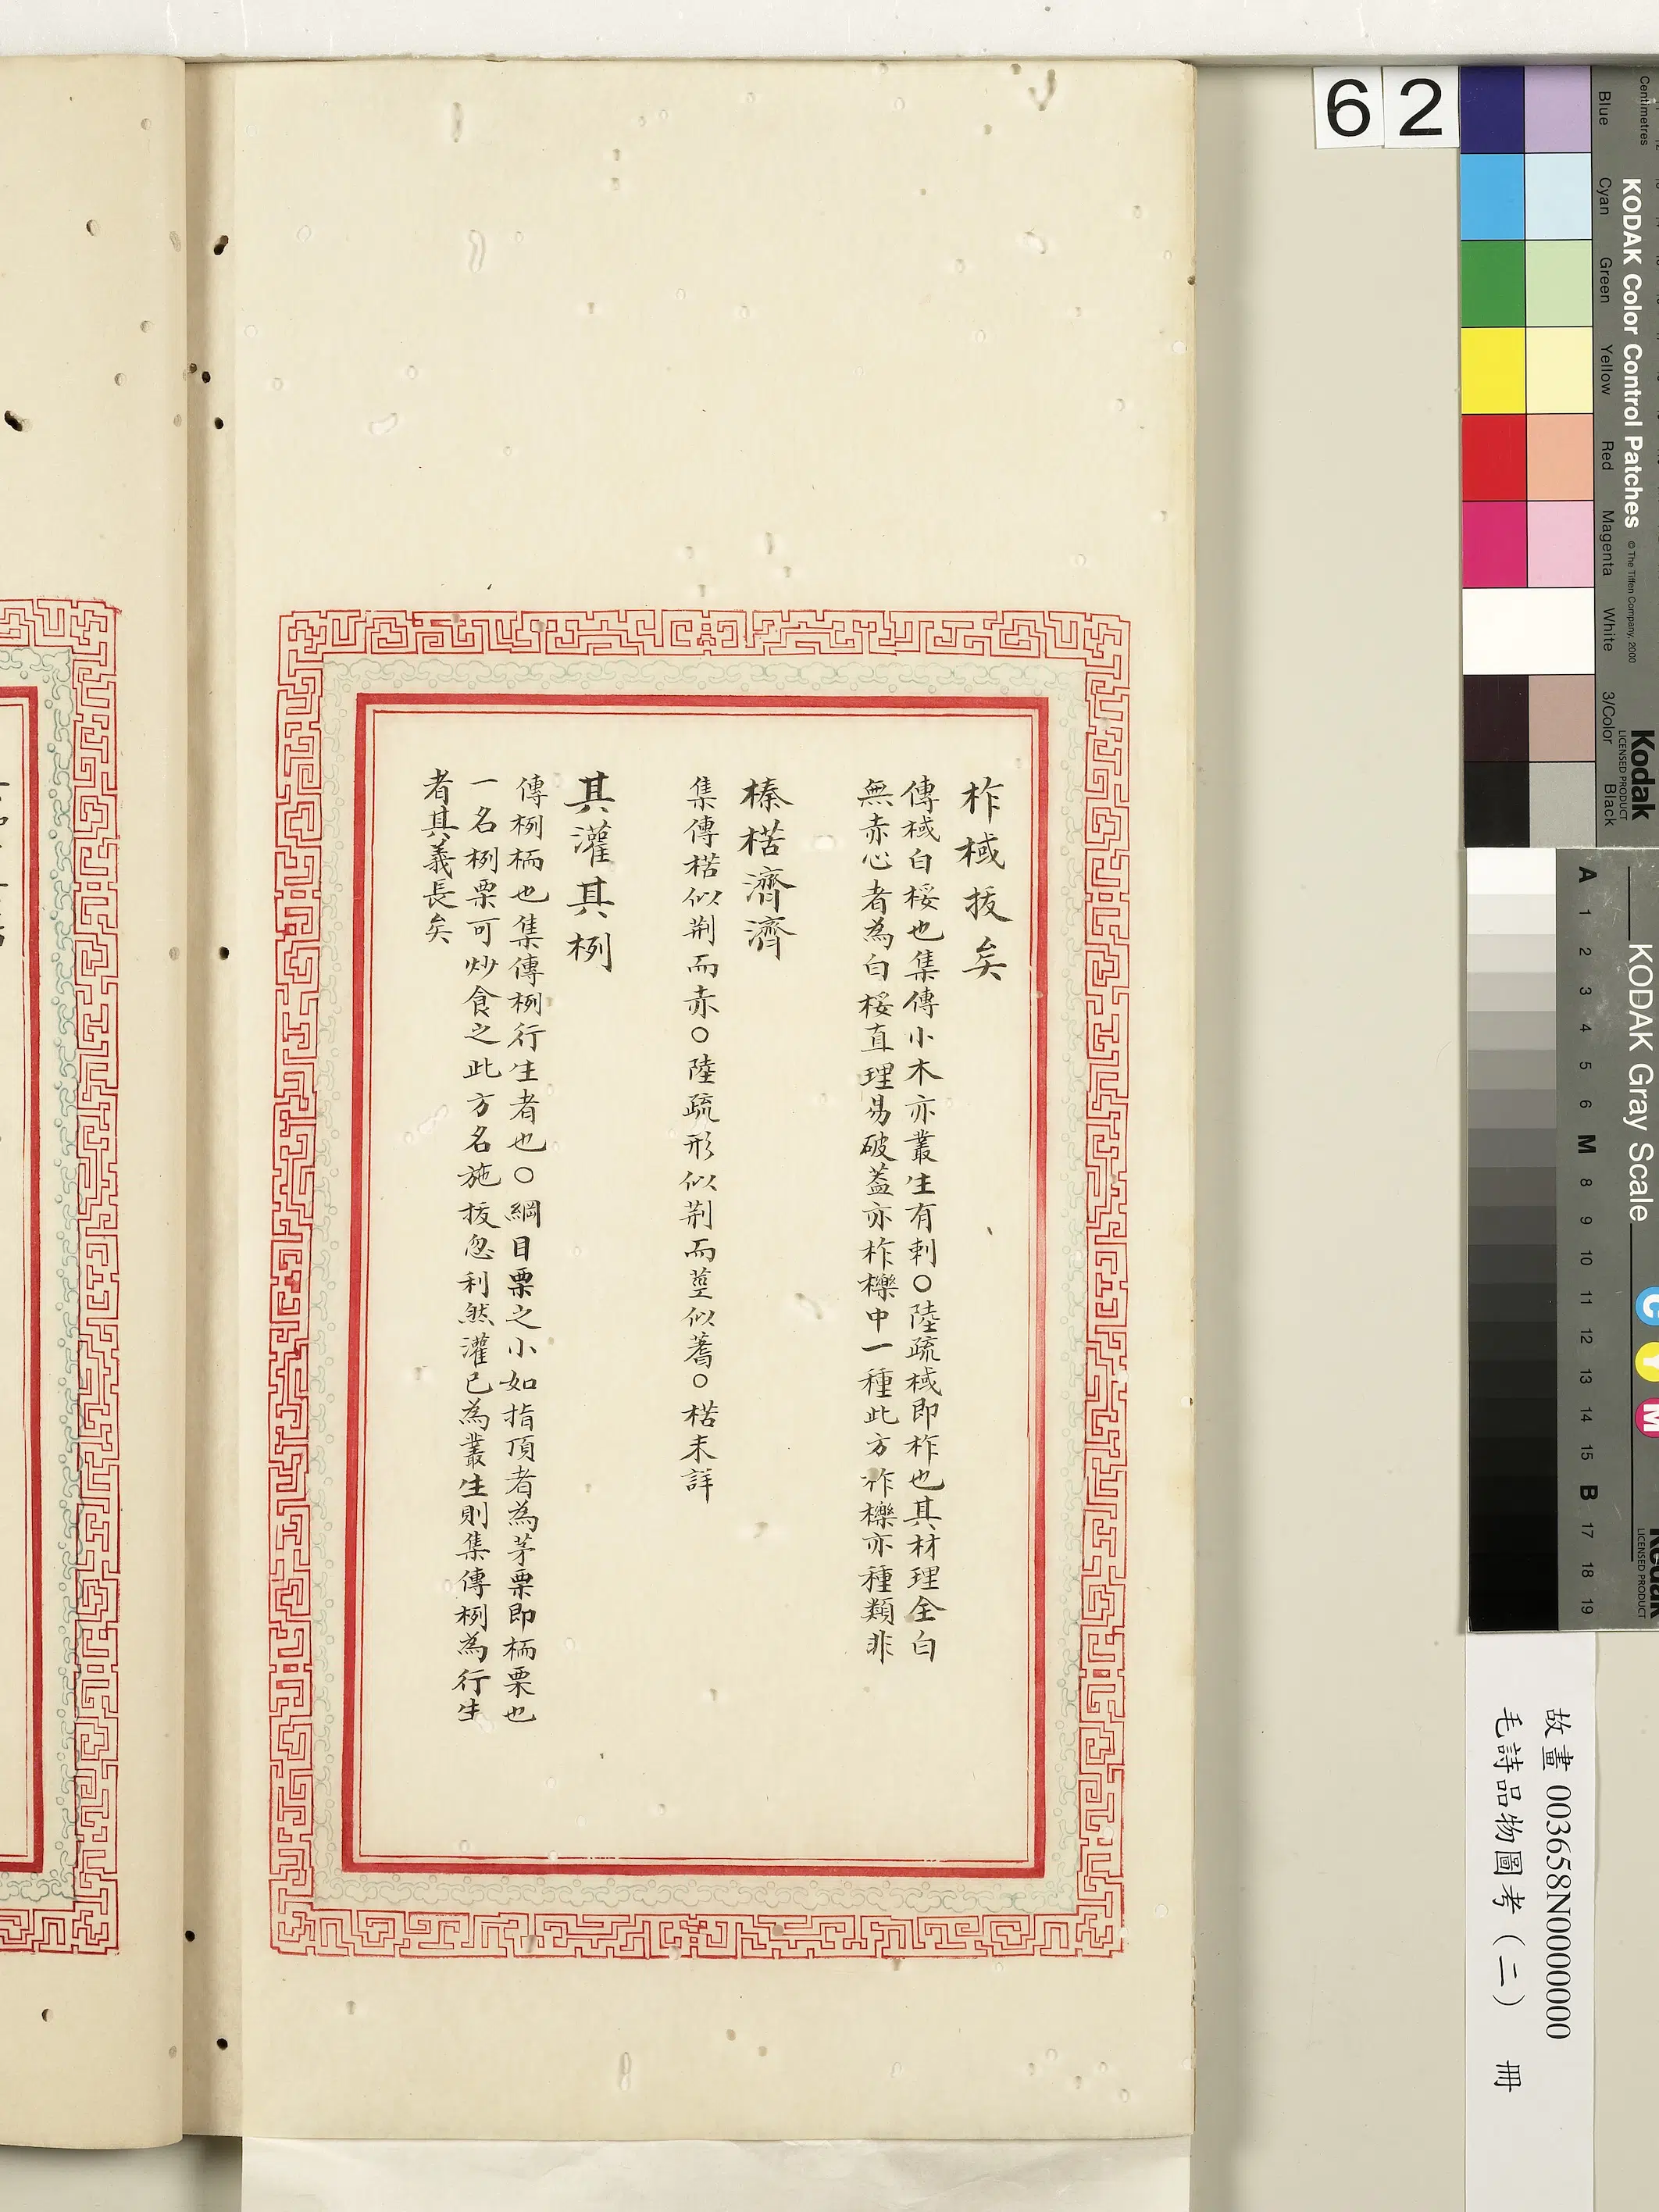 柞棫拔矣
傳棫白桵也集傳小木亦叢生有刺○陸疏棫即柞也其材理全白
無赤心者為白桵直理易破蓋亦柞櫟中一種此方柞櫟亦種類非
榛楛濟濟
集傳楛似荆而赤○陸疏形似荆而莖似蓍○楛未詳
其灌其栵
傳栵栭也集傳栵行生者也○綱目栗之小如指頂者為茅栗即栭栗也
一名栵栗可炒食之此方名施拔忽利然灌已為叢生則集傳栵為行生
者其義長矣
62
Centimetres
KODAK Color Control Patches
© The Tiffen Company, 2000
Kodak
LICENSED PRODUCT
Blue
Cyan
Green
Yellow
Red
Magenta
White
3/Color
Black
KODAK Gray Scale
C Y M
Kodak
LICENSED PRODUCT
A 1 2 3 4 5 6 M 8 9 10 11 12 13 14 15 B 17 18 19
故畫003658N000000
毛詩品物圖考（二） 冊